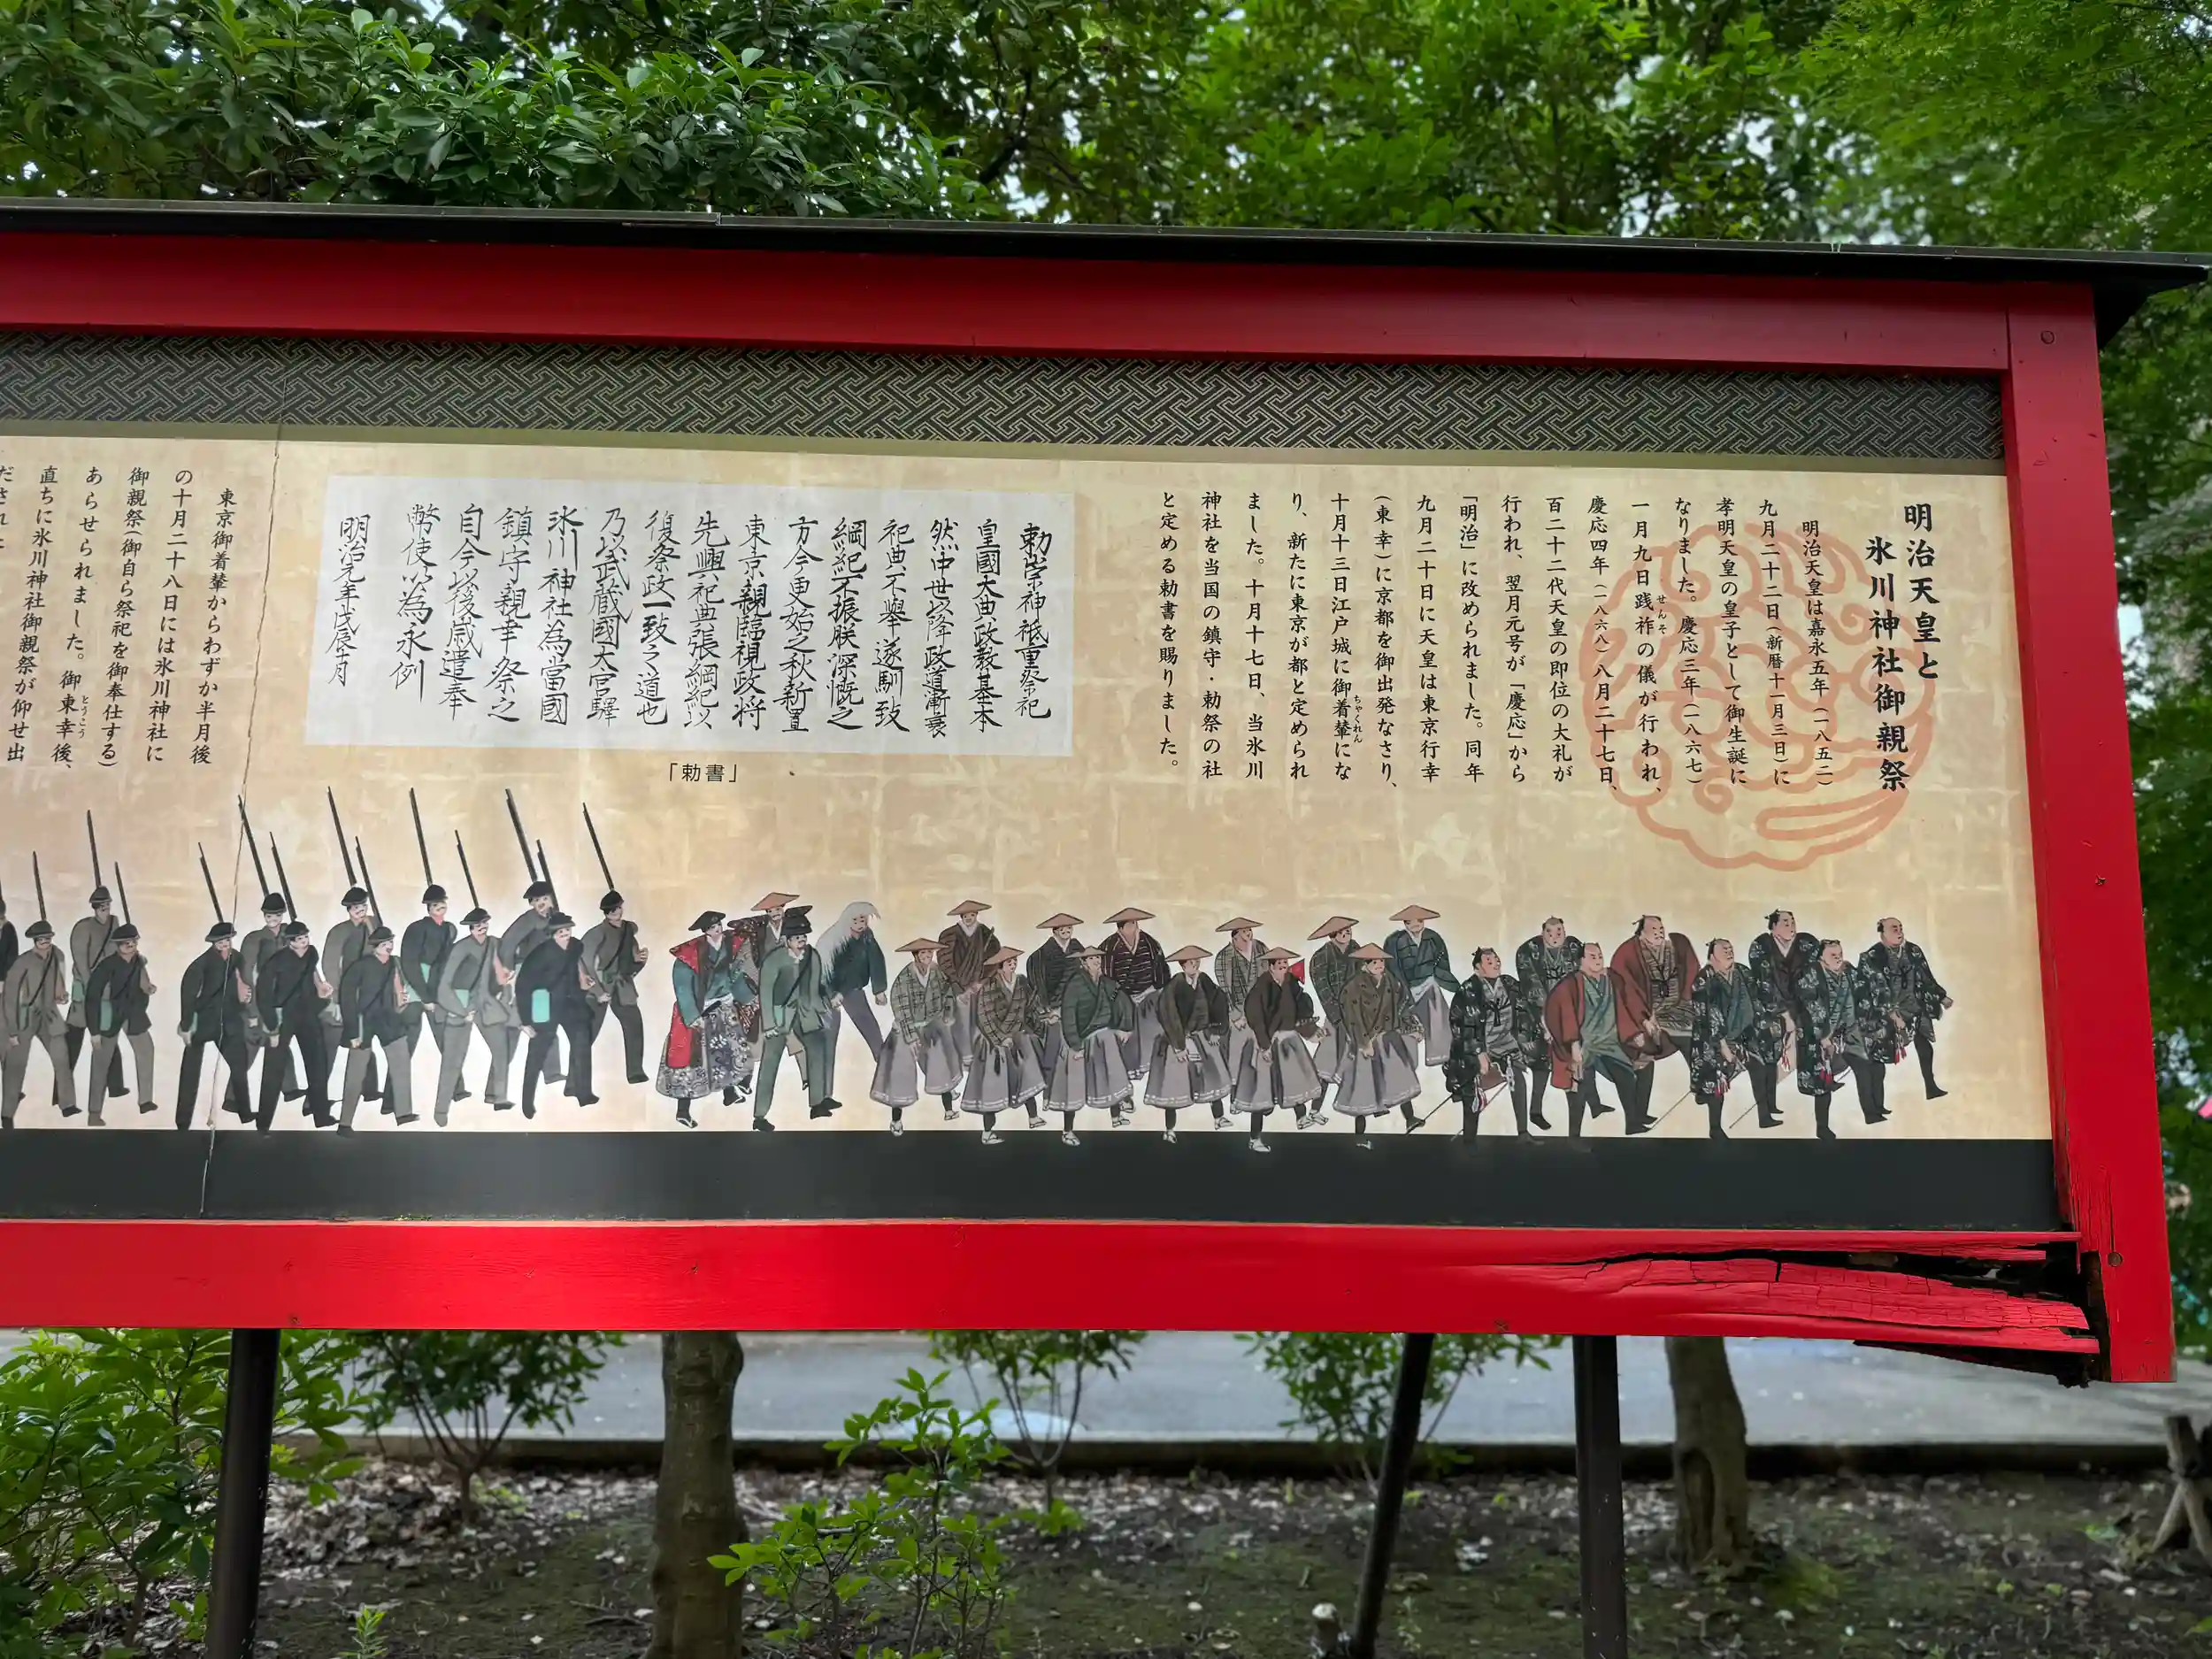 明治天皇と
氷川神社御親祭
明治天皇は嘉永五年（一八五二）
九月二十二日（新暦十一月三日）に
孝明天皇の皇子として御生誕に
なりました。慶応三年（一八六七）
一月九日践祚の儀が行われ、
せんそ
慶応四年（一八六八）八月二十七日、
百二十二代天皇の即位の大礼が
行われ、翌月元号が「慶応」から
「明治」に改められました。同年
九月二十日に天皇は東京行幸
（東幸）に京都を御出発なさり、
十月十三日江戸城に御着輦にな
ちゃくれん
り、新たに東京が都と定められ
ました。十月十七日、当氷川
神社を当国の鎮守・勅祭の社
と定める勅書を賜りました。
勅崇神祇重祭祀
皇國大典政教基本
然中世以降政道漸衰
祀典不擧遂馴致
綱紀不振朕深慨之
方今更始之秋新置
東京親臨視政将
先興祀典張綱紀以
復祭政一致之道也
乃以武蔵國大宮驛
氷川神社為當國
鎮守親幸祭之
自今以後歳遣奉
幣使以為永例
明治元年戊辰十月
「勅書」
東京御着輦からわずか半月後
の十月二十八日には氷川神社に
御親祭（御自ら祭祀を御奉仕する）
あらせられました。御東幸後、
とうこう
直ちに氷川神社御親祭が仰せ出